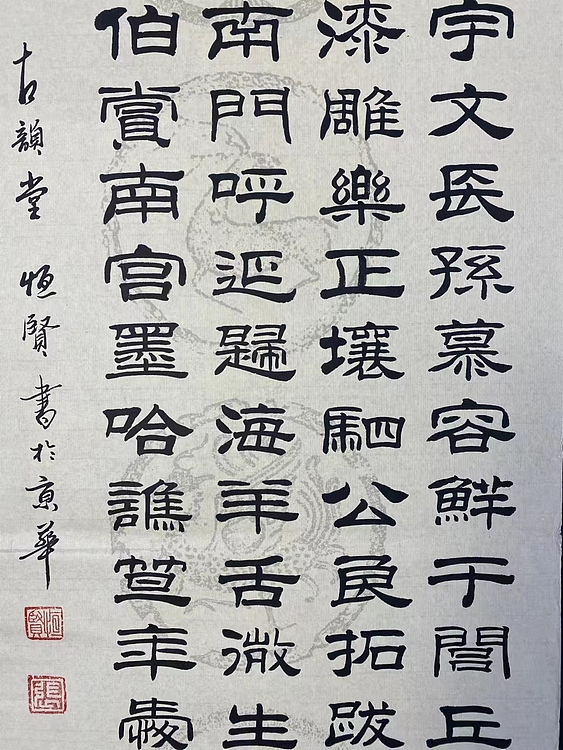 宇文長孫慕容鮮于閭丘
漆雕樂正壤駟公良拓跋
南門呼延歸海羊舌微生
伯賞南宮墨哈譙笪年愛
古韻堂 恒賢書於京華
恒賢